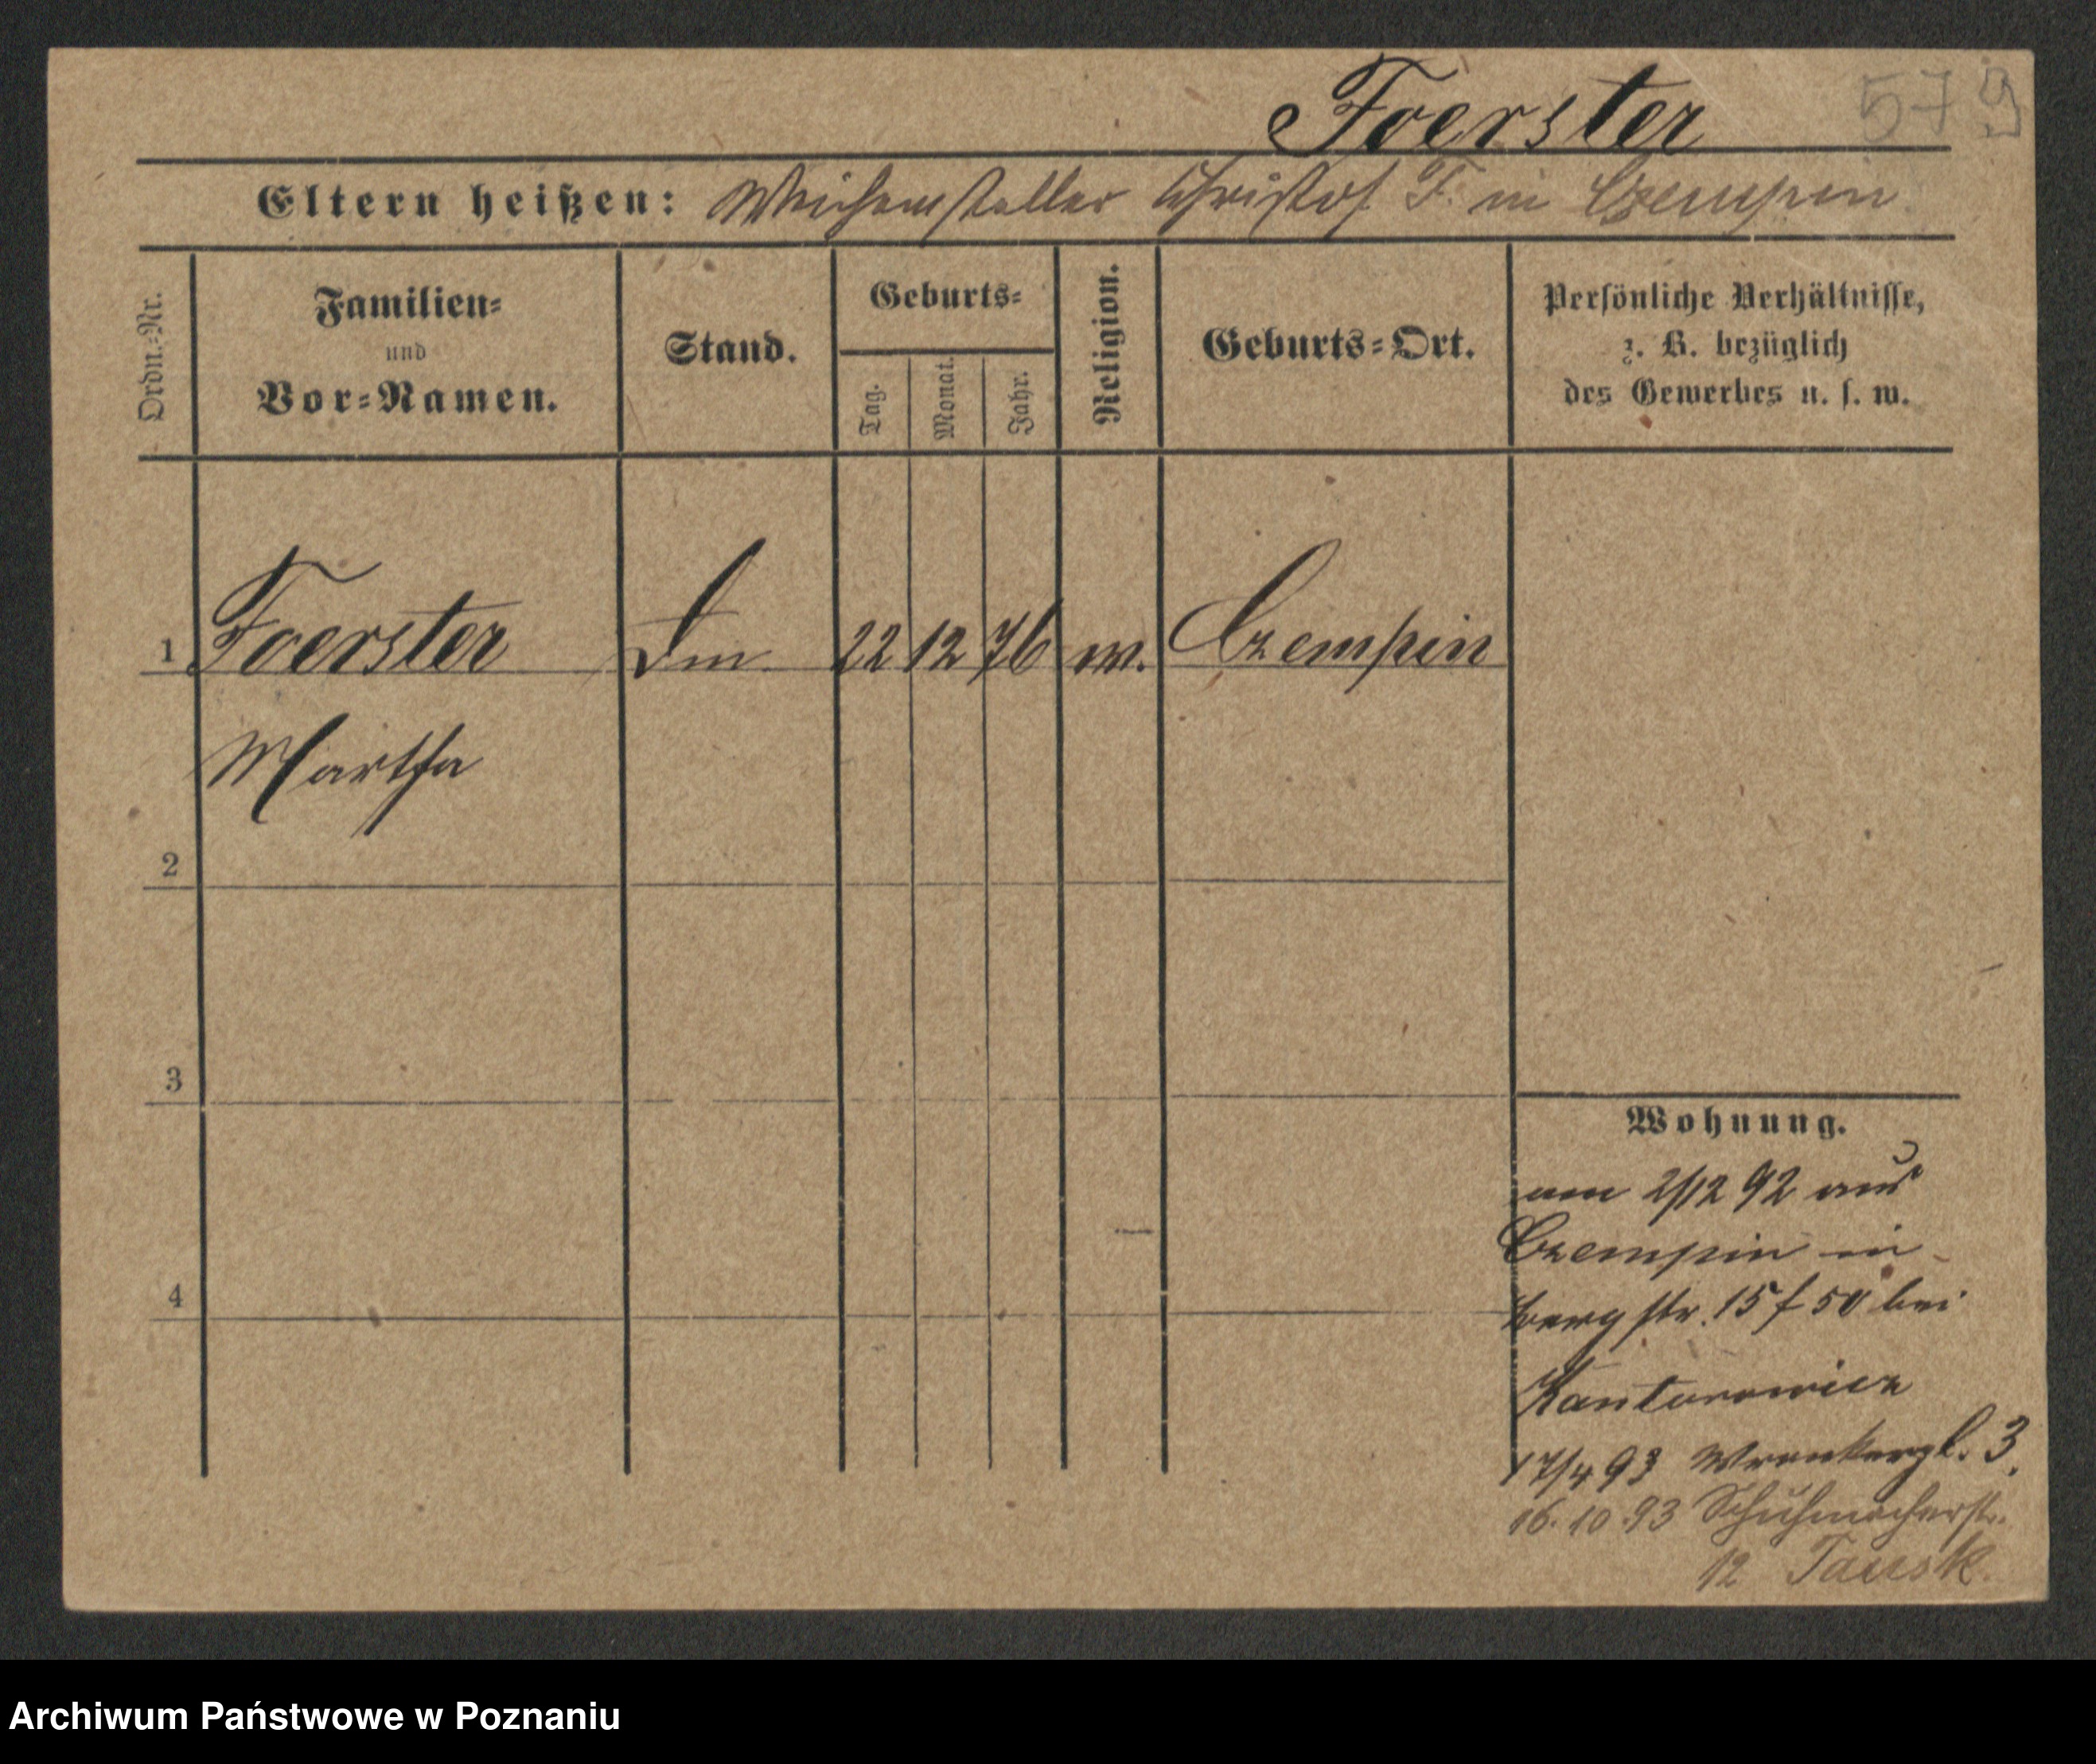 Foerster
579
Eltern heißen: Weichensteller Christof F. in Czempin
Ordn.-Nr.
Familien- und Vor-Namen.
Stand.
Geburts-
Tag.
Monat.
Jahr.
Religion.
Geburts-Ort.
Persönliche Verhältnisse,
z. B. bezüglich
des Gewerbes u. s. w.
1 Foerster 22 12 76 Czempin
Martha
2
3
4
Wohnung.
am 2/12 92 aus
Czempin in
Bergstr. 15 f 50 bei
Kantorowicz
17/4 93 Wronkerpl. 3.
16.10.93 Schuhmacherstr.
12 Tausk.
Archiwum Państwowe w Poznaniu